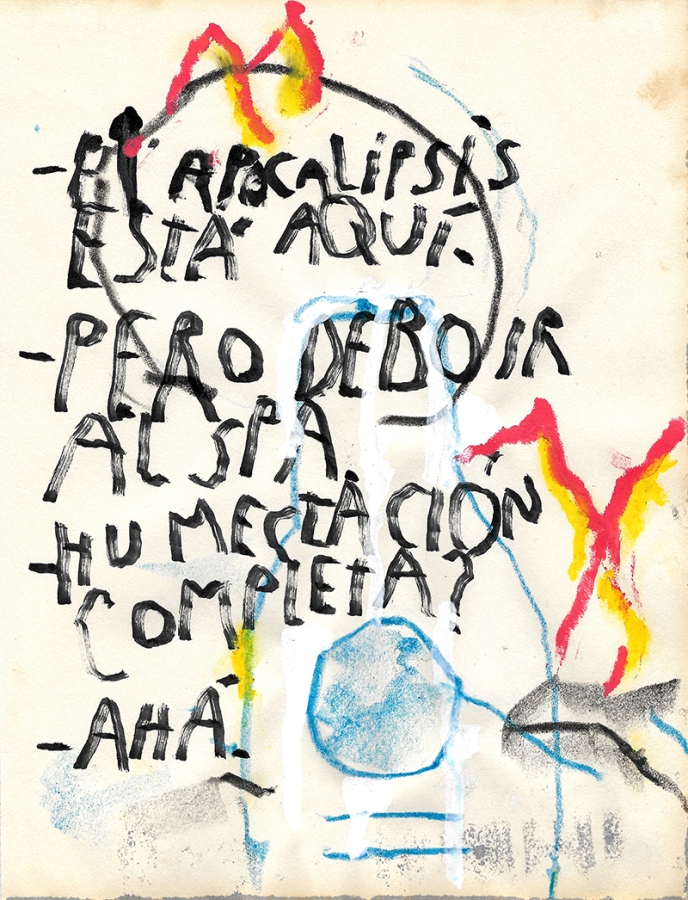 -EL APOCALIPSIS
ESTÁ AQUÍ.
-PERO DEBO IR
AL SPA.
-HUMECTACIÓN
COMPLETA?
-AHÁ.